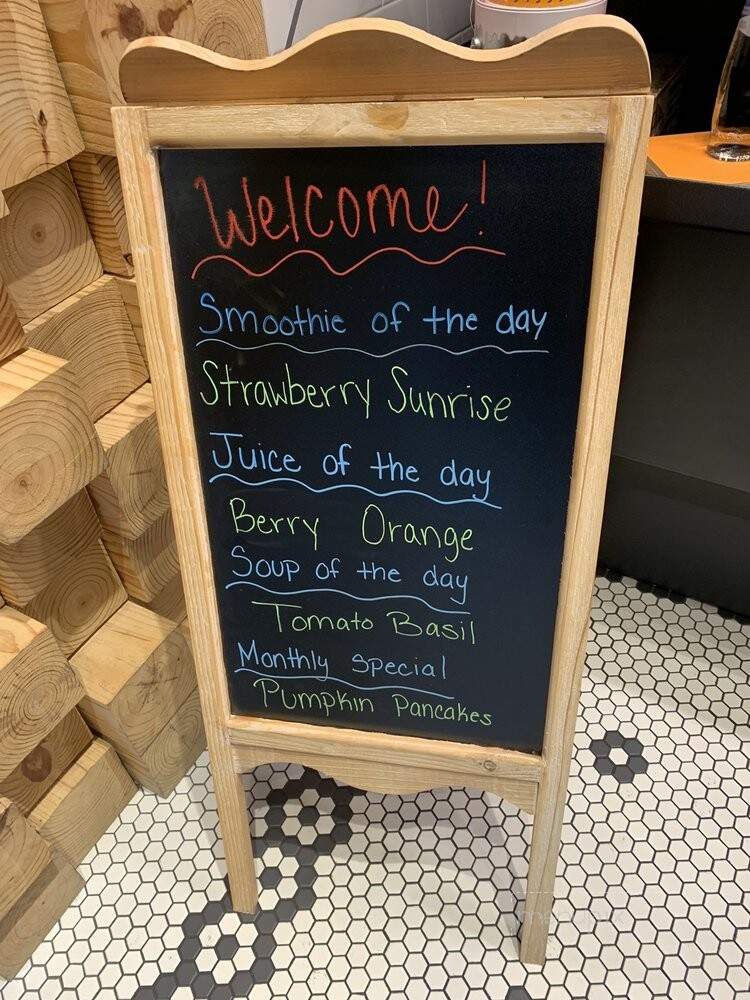 Welcome!
Smoothie of the day
Strawberry Sunrise
Juice of the day
Berry Orange
Soup of the day
Tomato Basil
Monthly Special
Pumpkin Pancakes